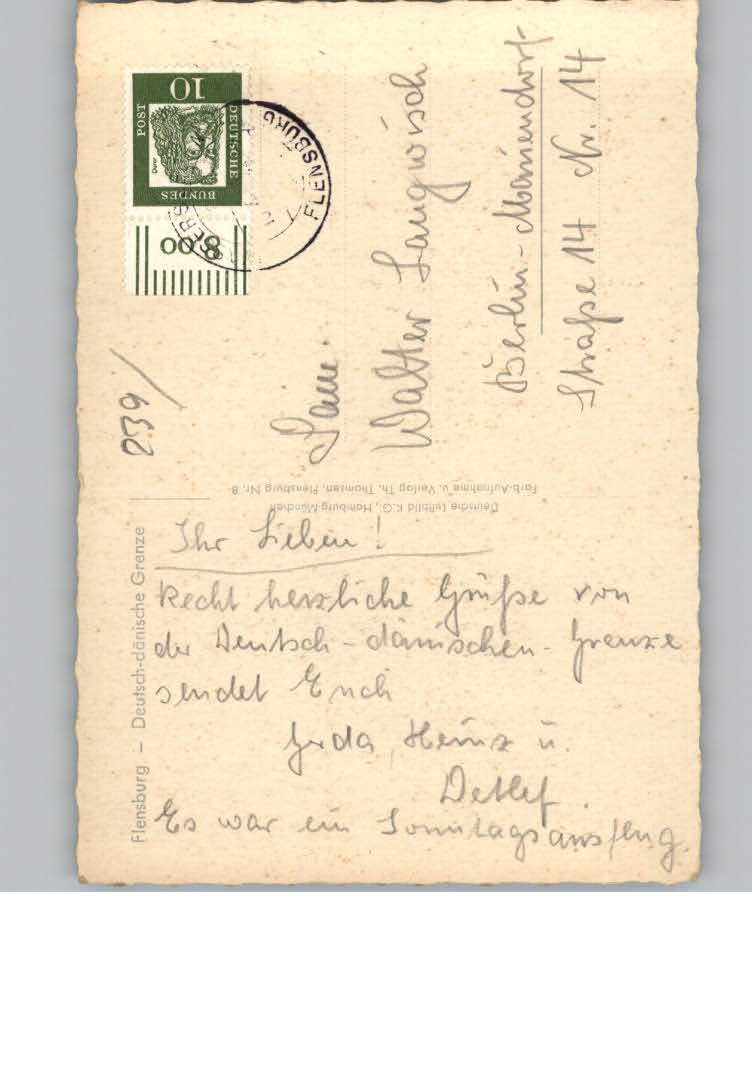 10
DEUTSCHE
BUNDES
POST
Dürer
8,00
FLENSBURG
239/
Fam.
Walter Langwisch
Berlin-Mariendorf
Straße 14 Nr. 14
Farb-Aufnahme u. Verlag Th. Thomsen, Flensburg Nr. 8
Deutsche Luftbild K.G., Hamburg-München
Flensburg – Deutsch-dänische Grenze
Ihr Lieben!
Recht herzliche Grüße von
der Deutsch-dänischen-Grenze
sendet Euch
Gerda, Heinz u.
Detlef.
Es war ein Sonntagsausflug.